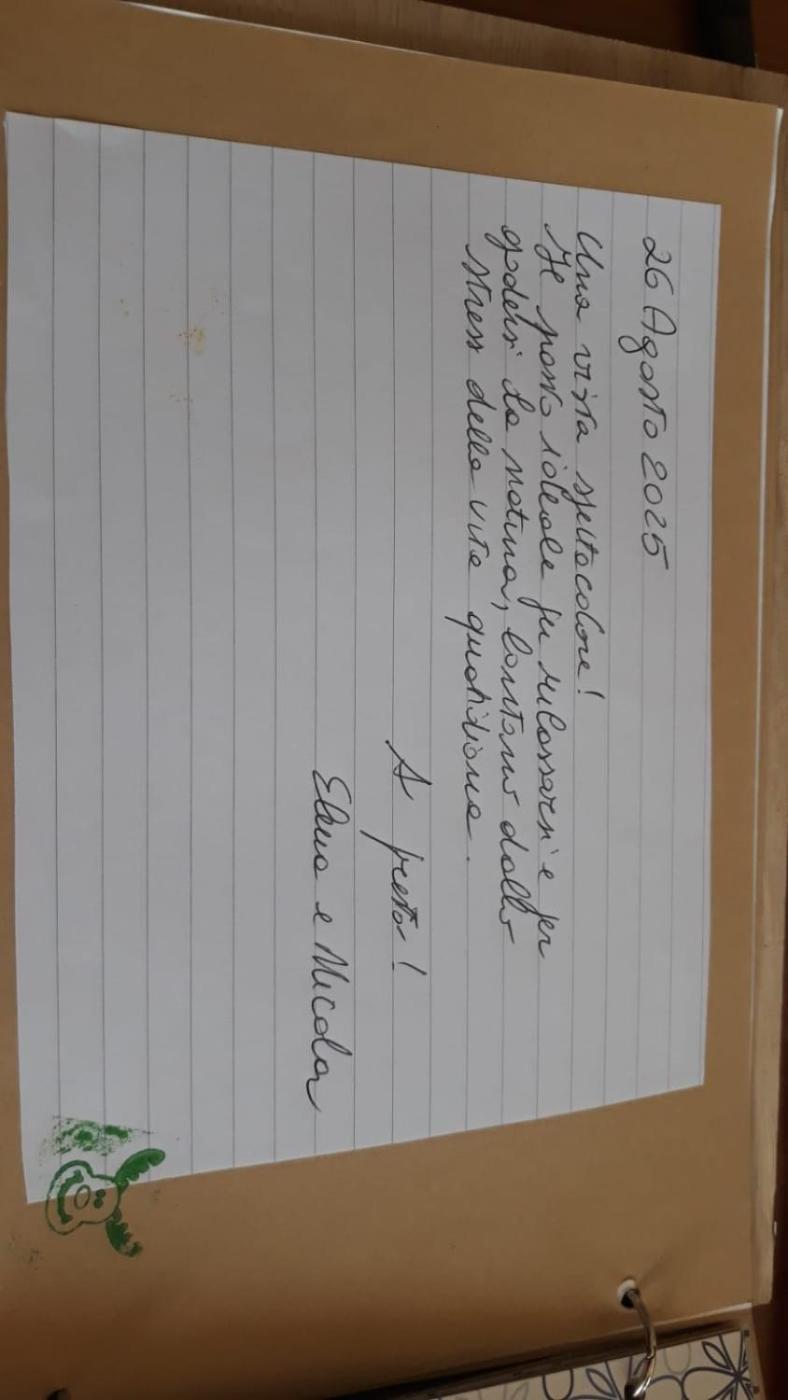 26 Agosto 2025
Una vista spettacolare!
Il posto ideale per rilassarsi e per
godersi la natura, lontano dallo
stress della vita quotidiana.
A presto!
Elena e Nicola